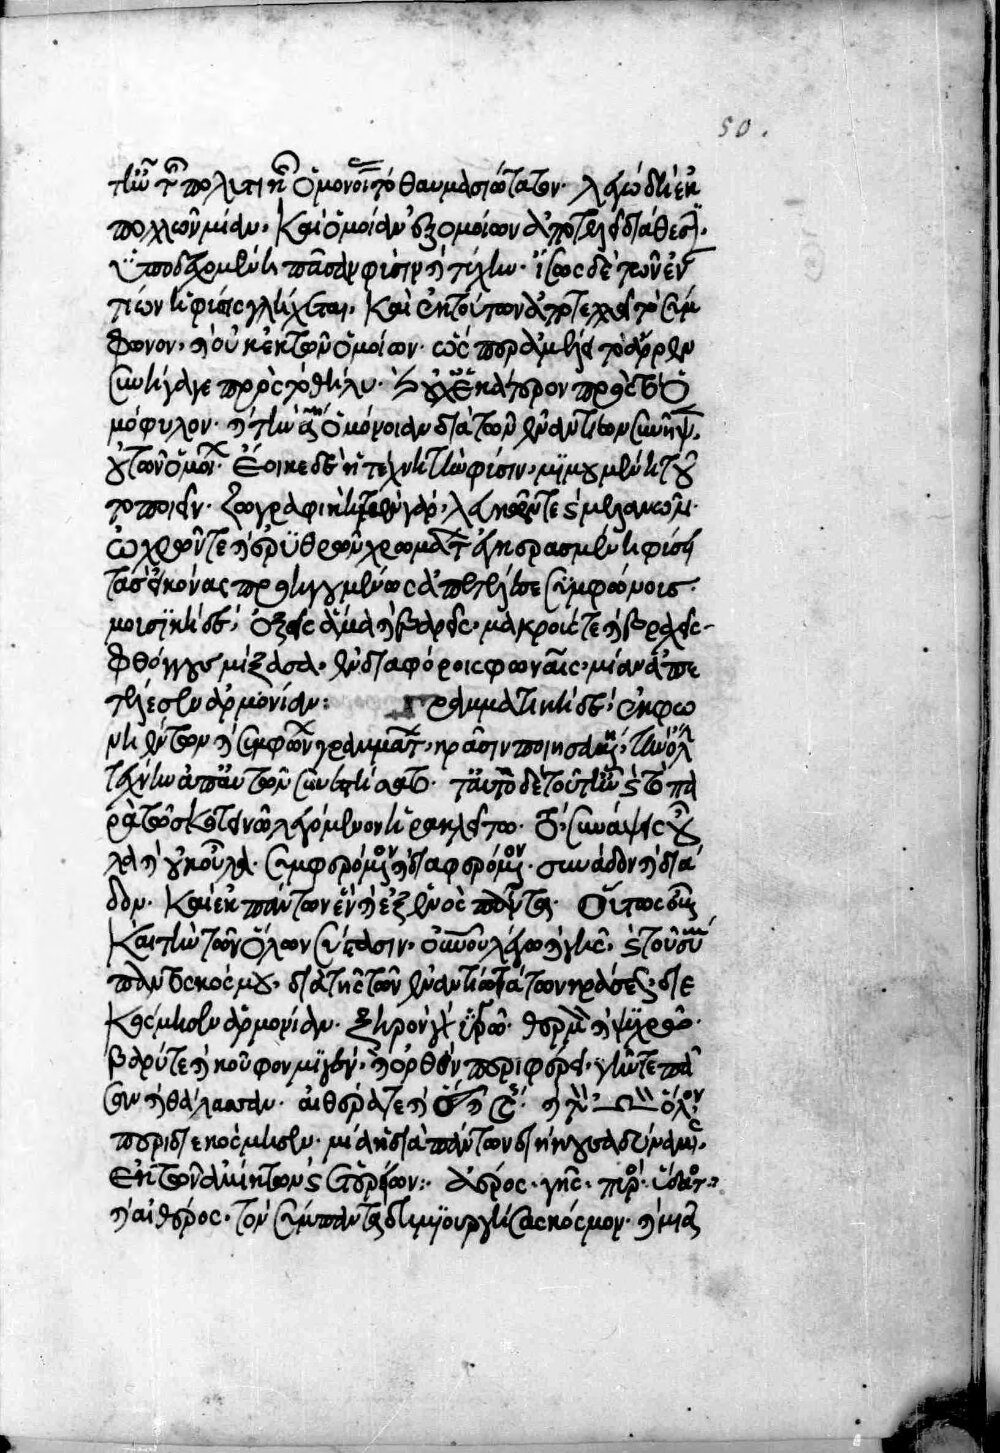 50.
τῆς πολιτικῆς ὁμονοίας τὸ θαυμασιώτατον· λέγω δὴ ἐκ
πολλῶν μίαν· καὶ ὁμοίαν ἐξ ὁμοίων ἀποτελεῖ διάθεσιν·
ὑποδεχομένη πᾶσαν φύσιν καὶ τύχην· ἴσως δὲ τῶν ἐναν
τίων ἡ φύσις γλίχεται· καὶ ἐκ τούτων ἀποτελεῖ τὸ σύμ
φωνον· καὶ οὐκ ἐκ τῶν ὁμοίων· ὡς περ ἀμέλει τὸ ἄρρεν
συνήγαγε πρὸς τὸ θῆλυ· καὶ οὐχ ἑκάτερον πρὸς τὸ ὁ
μόφυλον· καὶ τὴν ὁμόνοιαν διὰ τῶν ἐναντίων συνῆψεν·
οὐ τῶν ὁμοίων· ἔοικε δὲ ἡ τέχνη τὴν φύσιν μιμουμένη τοῦ
το ποιεῖν· ζωγραφικὴ μὲν γὰρ· λευκῶν τε καὶ μελάνων·
ὠχρῶν τε καὶ ἐρυθρῶν χρωμάτων ἐγκερασαμένη φύσεις
τὰς εἰκόνας προηγουμένοις ἀπετέλεσε συμφώνους·
μουσικὴ δέ· ὀξεῖς ἅμα καὶ βαρεῖς· μακρούς τε καὶ βραχεῖς
φθόγγους μίξασα· ἐν διαφόροις φωναῖς· μίαν ἀπε
τέλεσεν ἁρμονίαν: γραμματικὴ δέ· ἐκ φω
νηέντων καὶ ἀφώνων γραμμάτων· κρᾶσιν ποιησαμένη· τὴν ὅλην
τέχνην ἀπ' αὐτῶν συνεστήσατο· ταὐτὸ δὲ τοῦτο ἦν καὶ τὸ πα
ρὰ τῷ σκοτεινῷ λεγόμενον ἡρακλείτῳ· συνάψεις οὖ
λα καὶ οὐκ οὖλα· συμφερόμενον καὶ διαφερόμενον· συνᾶδον καὶ διᾶ
δον· καὶ ἐκ πάντων ἓν καὶ ἐξ ἑνὸς πάντες· οὕτως οὖν
καὶ τὴν τῶν ὅλων σύστασιν· οὐρανοῦ λέγω καὶ γῆς· καὶ τοῦ σύμ
παντος κόσμου· διὰ τῆς τῶν ἐναντιωτάτων κράσεως· διε
κόσμησεν ἁρμονίαν· ξηρὸν γὰρ ὑγρῷ· θερμὸν καὶ ψυχρῷ·
βαρύ τε καὶ κοῦφον μιγὲν· καὶ ὀρθὸν περιφερεῖ· γῆν τε πᾶ
σαν καὶ θάλασσαν· αἰθέρα τε καὶ ὅλον
περιδιεκόσμησεν· μία ἡ διὰ πάντων διήκουσα δύναμις·
ἐκ τῶν ἀμίκτων καὶ ἑτεροίων: ἀέρος· γῆς· πυρός· ὕδατος·
καὶ αἰθέρος· τὸν σύμπαντα δημιουργήσας κόσμον· καὶ μιᾷ